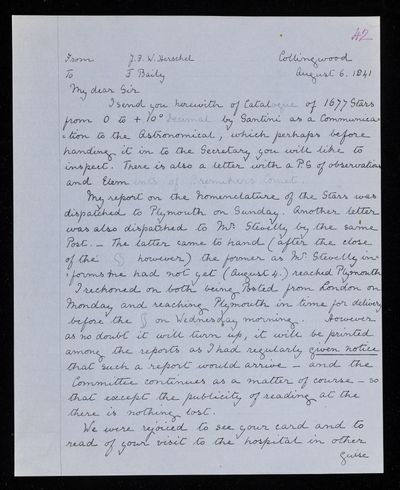 42
From J. F. W. Herschel Collingwood
To F. Baily August 6. 1841
My dear Sir
I send you herewith of Catalogue of 1677 Stars
from 0 to + 10° Decimal by Santini as a Communica-
-tion to the Astronomical, which perhaps before
handing it in to the Secretary you will like to
inspect. There is also a letter with a P.S of observations
and Elements of Bremiker's Comet.
My report on the Nomenclature of the Stars was
dispatched to Plymouth on Sunday. Another letter
was also dispatched to Mr. Stevelly by the same
Post. _ The latter came to hand (after the close
of the § however) the former as Mr. Stevelly in-
-forms me had not yet (August 4.) reached Plymouth
I reckoned on both being Posted from London on
Monday and reaching Plymouth in time for delivery
before the § on Wednesday morning. However
as no doubt it will turn up, it will be printed
among the reports as I had regularly given notice
that such a report would arrive _ and the
Committee continues as a matter of course _ so
that except the publicity of reading at the
there is nothing lost.
We were rejoiced to see your card and to
read of your visit to the hospital in other
guise